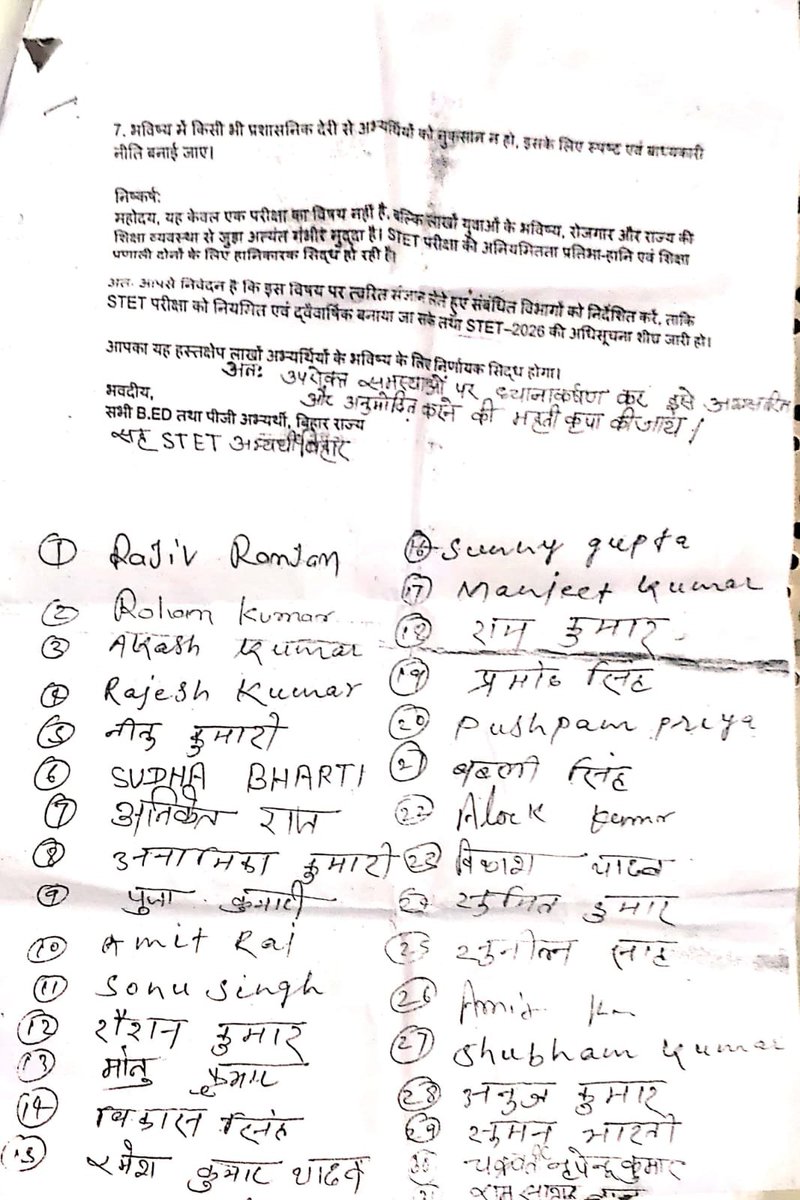 7. भविष्य में किसी भी प्रशासनिक देरी से अभ्यर्थियों को नुकसान न हो, इसके लिए स्पष्ट एवं बाध्यकारी
नीति बनाई जाए।
निष्कर्ष:
महोदय, यह केवल एक परीक्षा का विषय नहीं है, बल्कि लाखों युवाओं के भविष्य, रोजगार और राज्य की
शिक्षा व्यवस्था से जुड़ा अत्यंत गंभीर मुद्दा है। STET परीक्षा की अनियमितता प्रतिभा-हानि एवं शिक्षा
प्रणाली दोनों के लिए हानिकारक सिद्ध हो रही है।
अतः आपसे निवेदन है कि इस विषय पर त्वरित संज्ञान लेते हुए संबंधित विभागों को निर्देशित करें, ताकि
STET परीक्षा को नियमित एवं द्वैवार्षिक बनाया जा सके तथा STET–2026 की अधिसूचना शीघ्र जारी हो।
आपका यह हस्तक्षेप लाखों अभ्यर्थियों के भविष्य के लिए निर्णायक सिद्ध होगा।
अतः उपरोक्त समस्याओं पर ध्यानाकर्षण कर इसे
और अनुमोदित करने की महती कृपा की जाय।
भवदीय,
सभी B.ED तथा पीजी अभ्यर्थी, बिहार राज्य
सह STET अभ्यर्थी बिहार
1 Rajiv Ranjan
2 Kumar
3 Akash Kumar
4 Rajesh Kumar
5 नीतु कुमारी
6 SUDHA BHARTI
7 अनिकेत राज
8 अनामिका कुमारी
9 पुजा कुमारी
10 Amit Raj
11 Sonu Singh
12 रौशन कुमार
13 मोनु कुमार
14 विकास सिंह
15 रमेश कुमार यादव
16 Sunny gupta
17 Manjeet Kumar
18 राम कुमार
19 प्रमोद सिंह
20 Pushpam priya
21 बबली सिंह
22 Alock Kumar
23 विकाश यादव
24 सुमित कुमार
25 साह
26 Amit
27 Shubham Kumar
28 अनुज कुमार
29 सुमन भारती
30 चक्रवर्ती नृपेन्द्र कुमार
राम सागर